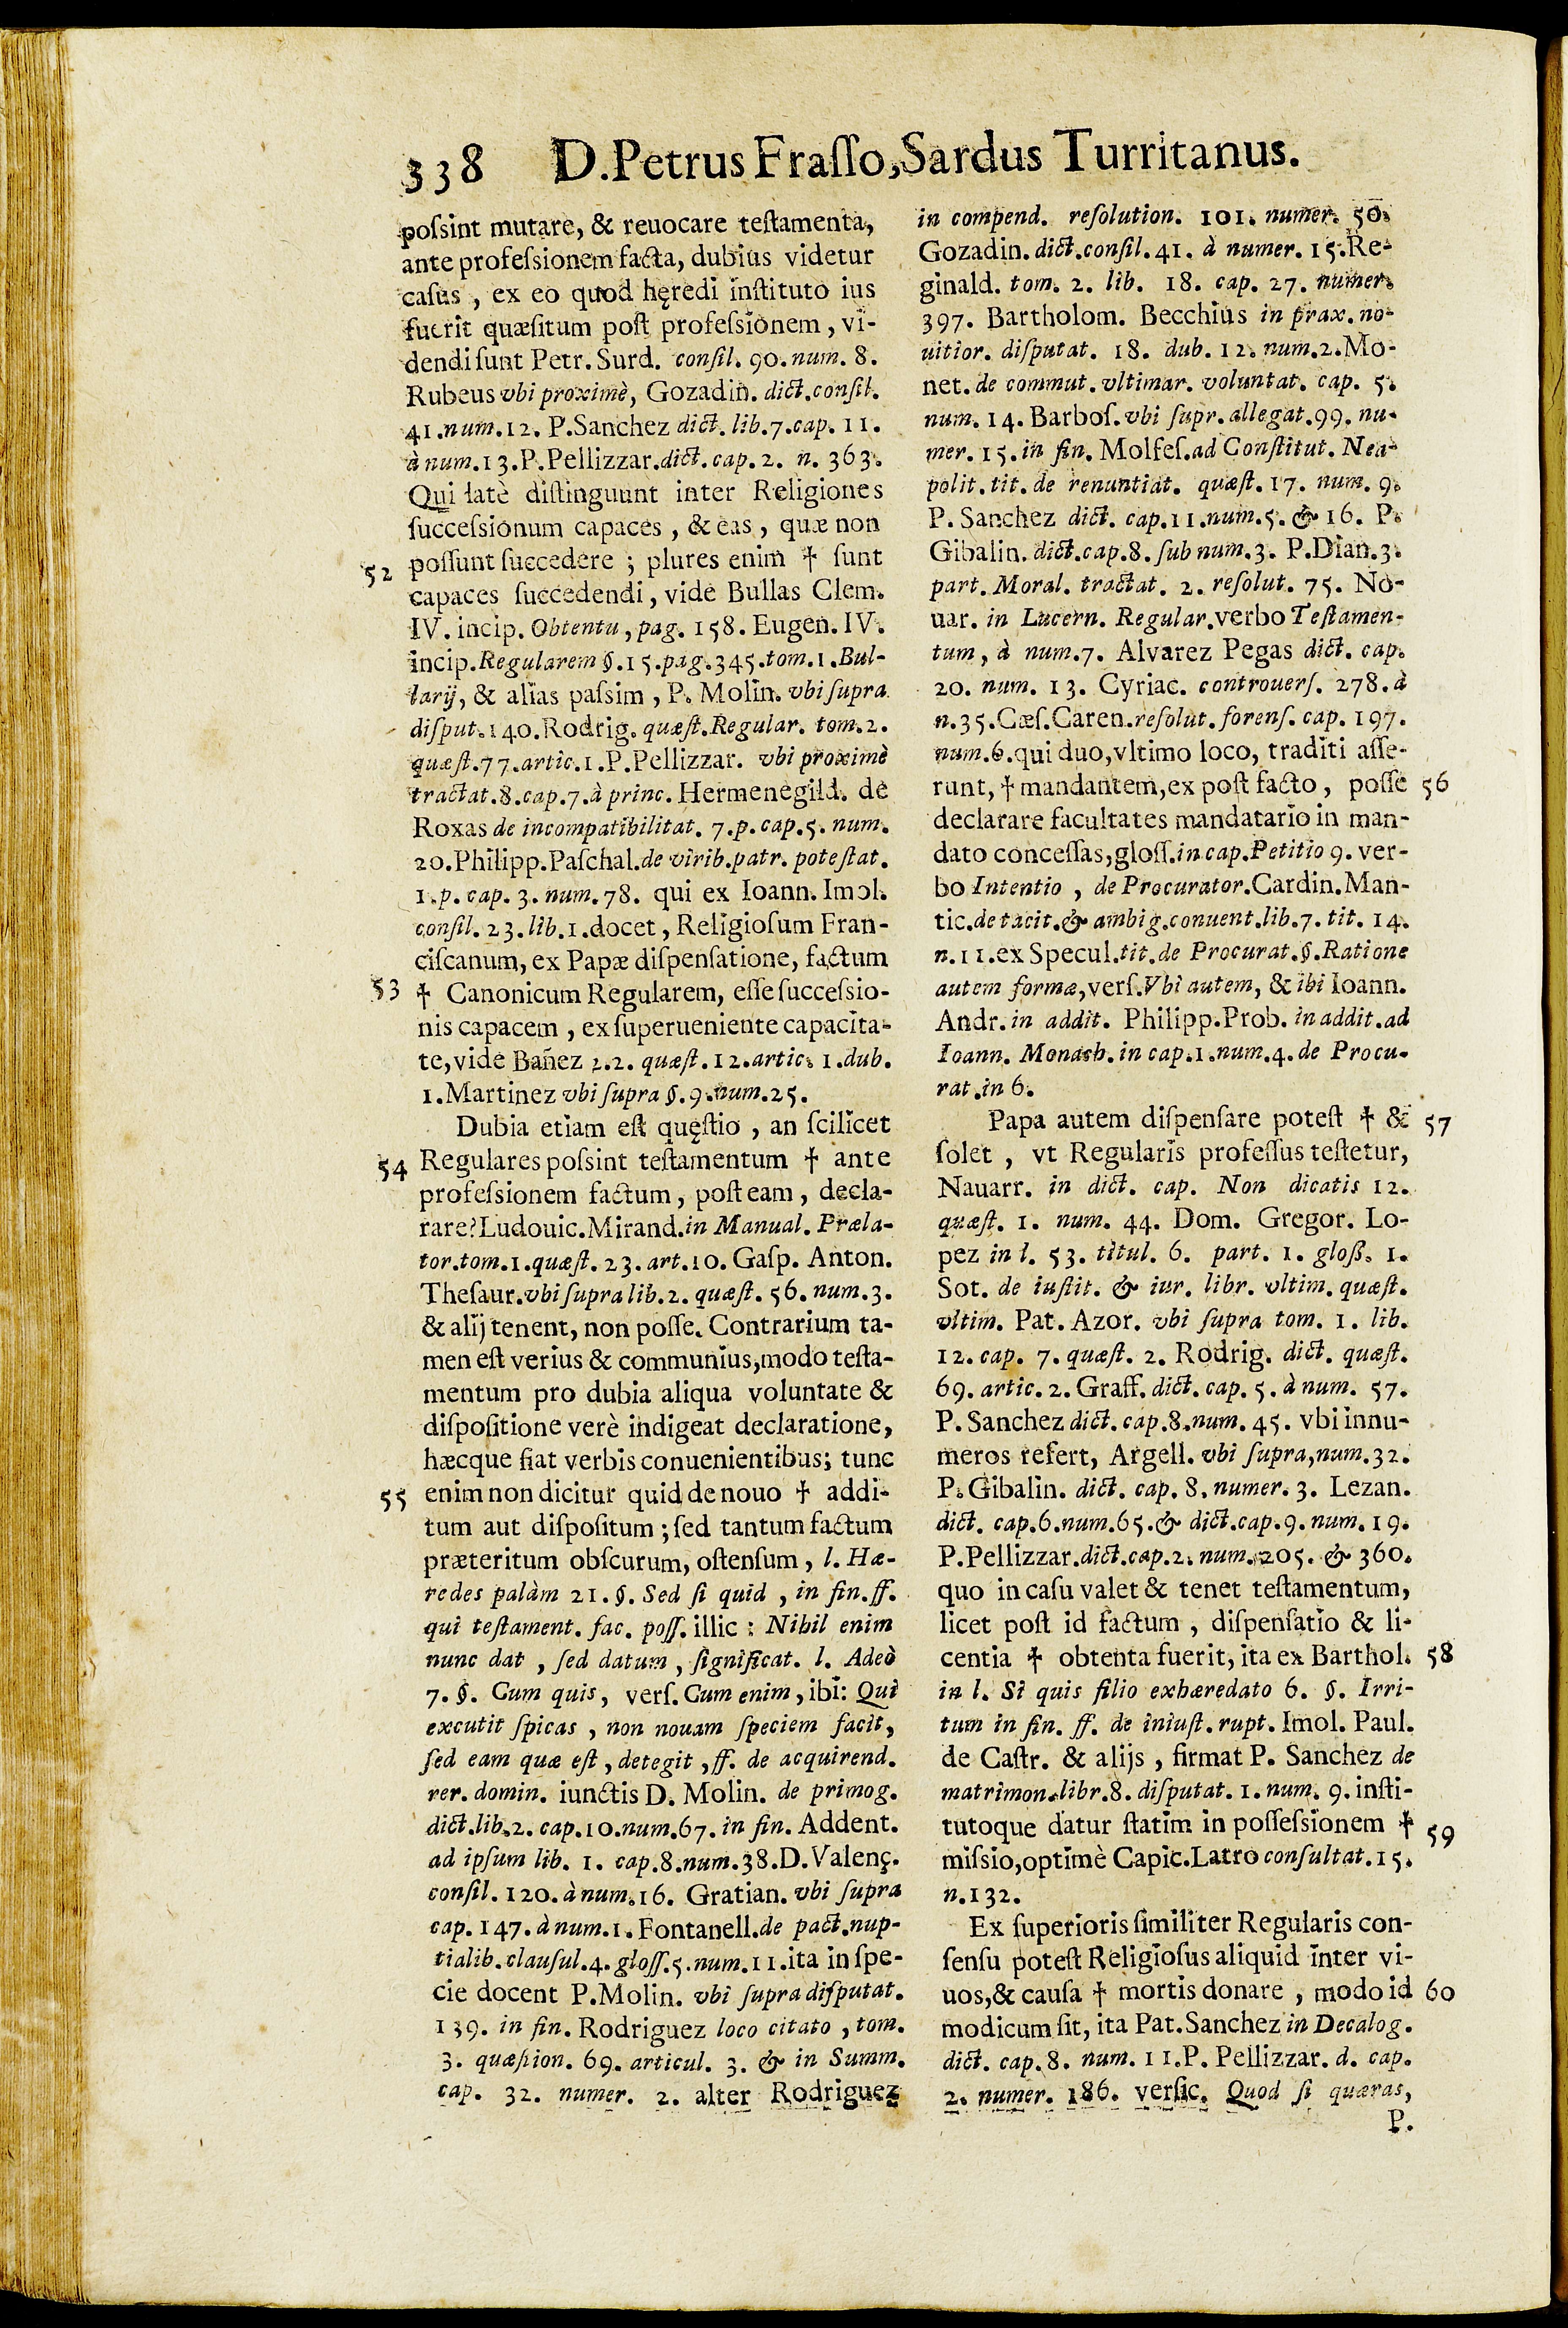 338 D.Petrus Fraſſo,Sardus Turritanus.
poſsint mutare, & reuocare teſtamenta,
ante profeſsionem facta, dubius videtur
caſus , ex eo quod hęredi inſtituto ius
fuerit quæſitum poſt profeſsionem , vi-
dendi ſunt Petr. Surd. conſil. 90. num. 8.
Rubeus vbi proximè, Gozadin. dict. conſil.
41. num. 12. P.Sanchez dict. lib. 7. cap. 11.
à num. 13. P. Pellizzar. dict. cap. 2. n. 363.
Qui latè diſtinguunt inter Religiones
ſucceſsionum capaces , & eas , quæ non
52 poſſunt ſuccedere ; plures enim † ſunt
capaces ſuccedendi , vide Bullas Clem.
IV. incip. Obtentu , pag. 158. Eugen. IV.
incip. Regularem §. 15. pag. 345. tom. 1. Bul-
larij, & alias paſsim , P. Molin. vbi ſupra
diſput. 140. Rodrig. quæſt. Regular. tom. 2.
quæſt. 77. artic. 1. P. Pellizzar. vbi proximè
tractat. 8. cap. 7. à princ. Hermenegild. de
Roxas de incompatibilitat. 7. p. cap. 5. num.
20. Philipp. Paſchal. de virib. patr. poteſtat.
1. p. cap. 3. num. 78. qui ex Ioann. Imol.
conſil. 23. lib. 1. docet , Religioſum Fran-
ciſcanum, ex Papæ diſpenſatione, factum
53 † Canonicum Regularem, eſſe ſucceſsio-
nis capacem , ex ſuperueniente capacita-
te, vide Bañez 2.2. quæſt. 12. artic. 1. dub.
1. Martinez vbi ſupra §. 9. num. 25.
Dubia etiam eſt quęſtio , an ſcilicet
54 Regulares poſsint teſtamentum † ante
profeſsionem factum, poſt eam , decla-
rare? Ludouic. Mirand. in Manual. Præla-
tor. tom. 1. quæſt. 23. art. 10. Gaſp. Anton.
Theſaur. vbi ſupra lib. 2. quæſt. 56. num. 3.
& alij tenent, non poſſe. Contrarium ta-
men eſt verius & communius, modo teſta-
mentum pro dubia aliqua voluntate &
diſpoſitione verè indigeat declaratione,
hæcque fiat verbis conuenientibus; tunc
55 enim non dicitur quid de nouo † addi-
tum aut diſpoſitum ; ſed tantum factum
præteritum obſcurum, oſtenſum , l. Hæ-
redes palàm 21. §. Sed ſi quid , in fin. ff.
qui teſtament. fac. poſſ. illic : Nihil enim
nunc dat , ſed datum , ſignificat. l. Adeò
7. §. Cum quis, verſ. Cum enim, ibi: Qui
excutit ſpicas , non nouam ſpeciem facit,
ſed eam quæ eſt , detegit , ff. de acquirend.
rer. domin. iunctis D. Molin. de primog.
dict. lib. 2. cap. 10. num. 67. in fin. Addent.
ad ipſum lib. 1. cap. 8. num. 38. D. Valenç.
conſil. 120. à num. 16. Gratian. vbi ſupra
cap. 147. à num. 1. Fontanell. de pact. nup-
tialib. clauſul. 4. gloſſ. 5. num. 11. ita in ſpe-
cie docent P. Molin. vbi ſupra diſputat.
139. in fin. Rodriguez loco citato , tom.
3. quæſtion. 69. articul. 3. & in Summ.
cap. 32. numer. 2. alter Rodriguez
in compend. reſolution. 101. numer. 50.
Gozadin. dict. conſil. 41. à numer. 15. Re-
ginald. tom. 2. lib. 18. cap. 27. numer.
397. Bartholom. Becchius in prax. no-
uitior. diſputat. 18. dub. 12. num. 2. Mo-
net. de commut. vltimar. voluntat. cap. 5.
num. 14. Barboſ. vbi ſupr. allegat. 99. nu-
mer. 15. in fin. Molfeſ. ad Conſtitut. Nea-
polit. tit. de renuntiat. quæſt. 17. num. 9.
P. Sanchez dict. cap. 11. num. 5. & 16. P.
Gibalin. dict. cap. 8. ſub num. 3. P. Dian. 3.
part. Moral. tractat. 2. reſolut. 75. No-
uar. in Lucern. Regular. verbo Teſtamen-
tum, à num. 7. Alvarez Pegas dict. cap.
20. num. 13. Cyriac. controuerſ. 278. à
n. 35. Cæſ. Caren. reſolut. forenſ. cap. 197.
num. 6. qui duo, vltimo loco, traditi aſſe-
runt, † mandantem, ex poſt facto , poſſe 56
declarare facultates mandatario in man-
dato conceſſas, gloſſ. in cap. Petitio 9. ver-
bo Intentio , de Procurator. Cardin. Man-
tic. de tacit. & ambig. conuent. lib. 7. tit. 14.
n. 11. ex Specul. tit. de Procurat. §. Ratione
autem formæ, verſ. Vbi autem, & ibi Ioann.
Andr. in addit. Philipp. Prob. in addit. ad
Ioann. Monach. in cap. 1. num. 4. de Procu-
rat. in 6.
Papa autem diſpenſare poteſt † & 57
ſolet , vt Regularis profeſſus teſtetur,
Nauarr. in dict. cap. Non dicatis 12.
quæſt. 1. num. 44. Dom. Gregor. Lo-
pez in l. 53. titul. 6. part. 1. gloß. 1.
Sot. de iuſtit. & iur. libr. vltim. quæſt.
vltim. Pat. Azor. vbi ſupra tom. 1. lib.
12. cap. 7. quæſt. 2. Rodrig. dict. quæſt.
69. artic. 2. Graff. dict. cap. 5. à num. 57.
P. Sanchez dict. cap. 8. num. 45. vbi innu-
meros refert, Argell. vbi ſupra, num. 32.
P. Gibalin. dict. cap. 8. numer. 3. Lezan.
dict. cap. 6. num. 65. & dict. cap. 9. num. 19.
P. Pellizzar. dict. cap. 2. num. 205. & 360.
quo in caſu valet & tenet teſtamentum,
licet poſt id factum , diſpenſatio & li-
centia † obtenta fuerit, ita ex Barthol. 58
in l. Si quis filio exhæredato 6. §. Irri-
tum in fin. ff. de iniuſt. rupt. Imol. Paul.
de Caſtr. & alijs , firmat P. Sanchez de
matrimon. libr. 8. diſputat. 1. num. 9. inſti-
tutoque datur ſtatim in poſſeſsionem † 59
miſsio, optimè Capic. Latro conſultat. 15.
n. 132.
Ex ſuperioris ſimiliter Regularis con-
ſenſu poteſt Religioſus aliquid inter vi-
uos, & cauſa † mortis donare , modo id 60
modicum ſit, ita Pat. Sanchez in Decalog.
dict. cap. 8. num. 11. P. Pellizzar. d. cap.
2. numer. 186. verſic. Quod ſi quæras,
P.